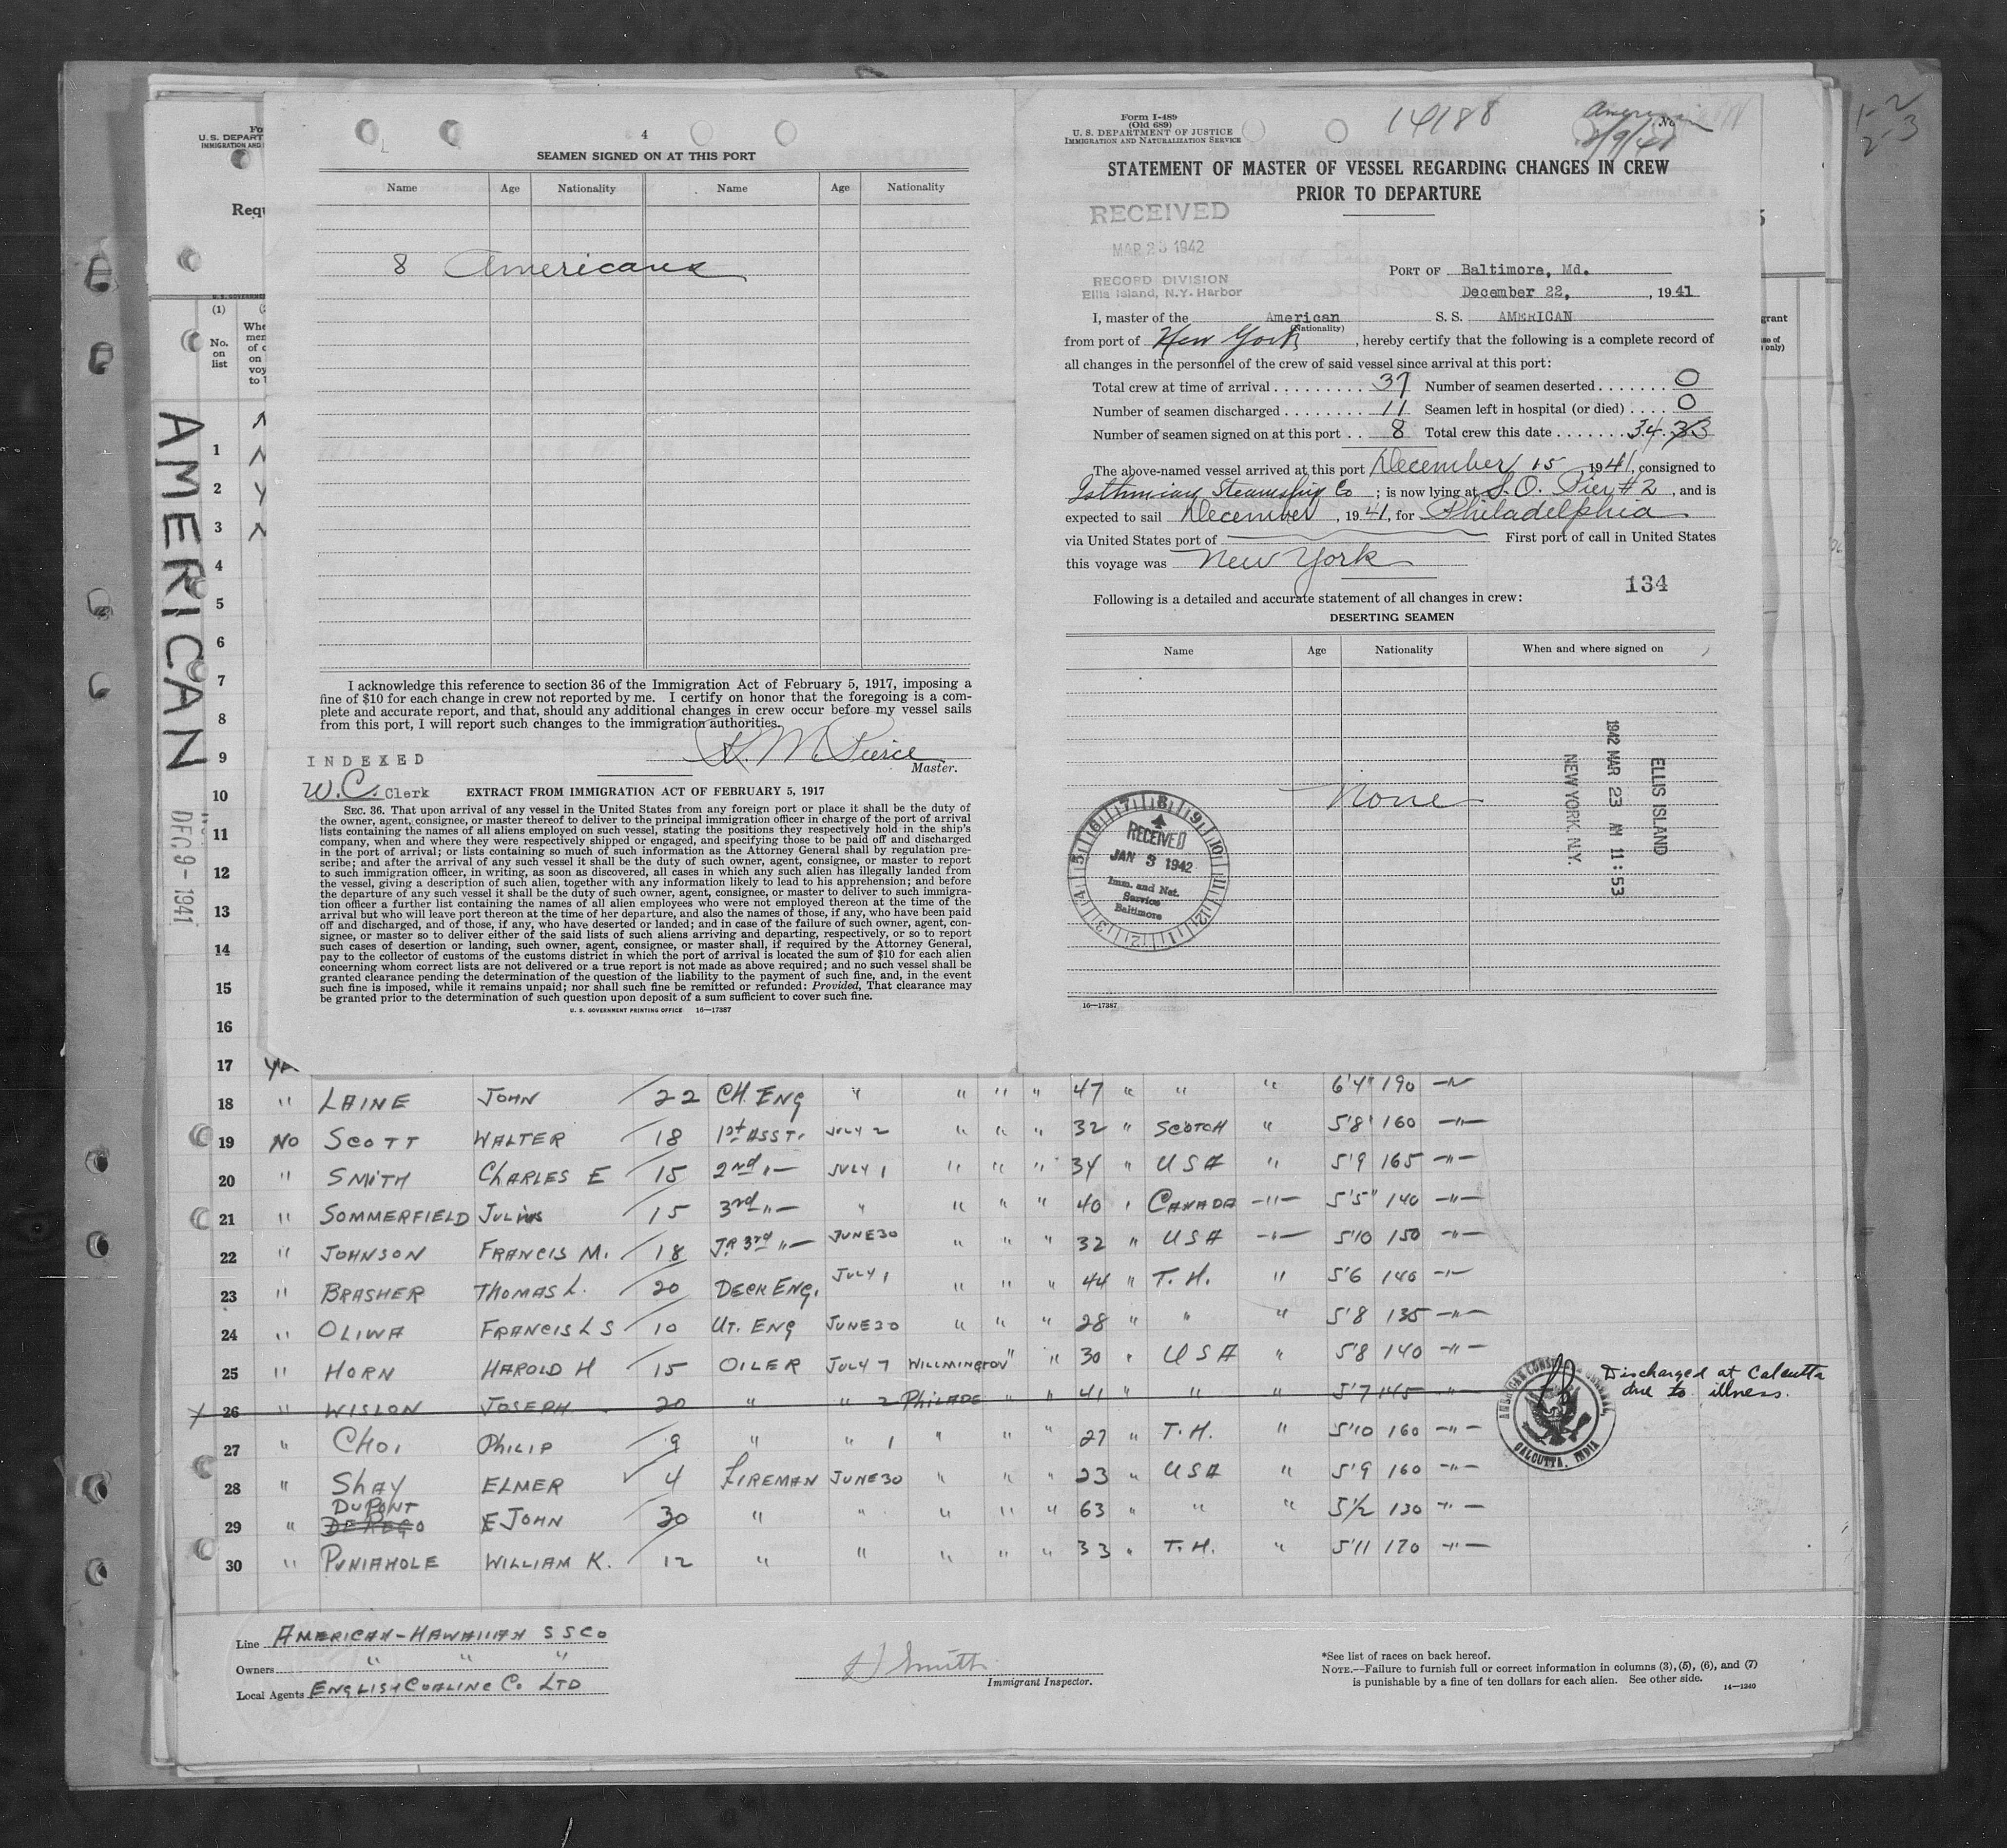 4
SEAMEN SIGNED ON AT THIS PORT
Name Age Nationality Name Age Nationality
8 Americans
I acknowledge this reference to section 36 of the Immigration Act of February 5, 1917, imposing a
fine of $10 for each change in crew not reported by me. I certify on honor that the foregoing is a com-
plete and accurate report, and that, should any additional changes in crew occur before my vessel sails
from this port, I will report such changes to the immigration authorities.
INDEXED
K. M. Pierce
Master.
W.C. Clerk
EXTRACT FROM IMMIGRATION ACT OF FEBRUARY 5, 1917
SEC. 36. That upon arrival of any vessel in the United States from any foreign port or place it shall be the duty of
the owner, agent, consignee, or master thereof to deliver to the principal immigration officer in charge of the port of arrival
lists containing the names of all aliens employed on such vessel, stating the positions they respectively hold in the ship's
company, when and where they were respectively shipped or engaged, and specifying those to be paid off and discharged
in the port of arrival; or lists containing so much of such information as the Attorney General shall by regulation pre-
scribe; and after the arrival of any such vessel it shall be the duty of such owner, agent, consignee, or master to report
to such immigration officer, in writing, as soon as discovered, all cases in which any such alien has illegally landed from
the vessel, giving a description of such alien, together with any information likely to lead to his apprehension; and before
the departure of any such vessel it shall be the duty of such owner, agent, consignee, or master to deliver to such immigra-
tion officer a further list containing the names of all alien employees who were not employed thereon at the time of the
arrival but who will leave port thereon at the time of her departure, and also the names of those, if any, who have been paid
off and discharged, and of those, if any, who have deserted or landed; and in case of the failure of such owner, agent, con-
signee, or master so to deliver either of the said lists of such aliens arriving and departing, respectively, or so to report
such cases of desertion or landing, such owner, agent, consignee, or master shall, if required by the Attorney General,
pay to the collector of customs of the customs district in which the port of arrival is located the sum of $10 for each alien
concerning whom correct lists are not delivered or a true report is not made as above required; and no such vessel shall be
granted clearance pending the determination of the question of the liability to the payment of such fine, and, in the event
such fine is imposed, while it remains unpaid; nor shall such fine be remitted or refunded: Provided, That clearance may
be granted prior to the determination of such question upon deposit of a sum sufficient to cover such fine.
U. S. GOVERNMENT PRINTING OFFICE 16—17387
Form I-489
(Old 689)
U. S. DEPARTMENT OF JUSTICE
IMMIGRATION AND NATURALIZATION SERVICE
14188
American
No.
1-2
2-3
STATEMENT OF MASTER OF VESSEL REGARDING CHANGES IN CREW
PRIOR TO DEPARTURE
RECEIVED
MAR 23 1942
RECORD DIVISION
Ellis Island, N.Y. Harbor
PORT OF Baltimore, Md.
December 22, , 1941
I, master of the American S. S. AMERICAN
(Nationality)
from port of New York , hereby certify that the following is a complete record of
all changes in the personnel of the crew of said vessel since arrival at this port:
Total crew at time of arrival . . . . . . . . . 37 Number of seamen deserted . . . . . . . 0
Number of seamen discharged . . . . . . . . 11 Seamen left in hospital (or died) . . . . 0
Number of seamen signed on at this port . . 8 Total crew this date . . . . . . . 34 33
The above-named vessel arrived at this port December 15 , 1941, consigned to
Isthmian Steamship Co ; is now lying at S. O. Pier #2 , and is
expected to sail December , 1941, for Philadelphia
via United States port of First port of call in United States
this voyage was New York
134
Following is a detailed and accurate statement of all changes in crew:
DESERTING SEAMEN
Name Age Nationality When and where signed on
None
RECEIVED
JAN 5 1942
Imm. and Nat.
Service
Baltimore
ELLIS ISLAND
1942 MAR 23 AM 11:53
NEW YORK, N.Y.
16—17387
U. S. DEPART
IMMIGRATION AND
Requ
(1)
No.
on
list
AMERICAN
DEC 9 - 1941
1
2
3
4
5
6
7
8
9
10
11
12
13
14
15
16
17
18 " LAINE JOHN 22 CH. ENG " " " " 47 " " " 6'4" 190 —"—
19 NO SCOTT WALTER 18 1st ASST. JULY 2 " " " 32 " SCOTCH " 5'8" 160 —"—
20 " SMITH CHARLES E 15 2nd "— JULY 1 " " " 34 " USA " 5'9 165 —"—
21 " SOMMERFIELD JULIUS 15 3rd "— " " " " 40 " CANADA —"— 5'5" 140 —"—
22 " JOHNSON FRANCIS M. 18 JR 3rd "— JUNE 30 " " " 32 " USA —"— 5'10 150 —"—
23 " BRASHER THOMAS L. 20 DECK ENG. JULY 1 " " " 44 " T. H. " 5'6 140 —"—
24 " OLIWA FRANCIS L S 10 UT. ENG JUNE 30 " " " 28 " " " 5'8 135 —"—
25 " HORN HAROLD H 15 OILER JULY 7 WILLMINGTON " " 30 " USA " 5'8 140 —"—
26 " WISLON JOSEPH 20 " " 2 PHILADE " " 41 " " " 5'7 145 " Discharged at Calcutta
due to illness.
AMERICAN CONSULATE GENERAL, CALCUTTA, INDIA
27 " CHOI PHILIP 9 " " 1 " " " 27 " T. H. " 5'10 160 —"—
28 " SHAY ELMER 4 FIREMAN JUNE 30 " " " 23 " USA " 5'9 160 —"—
DUPONT
29 " DEREGO E JOHN 30 " " " " " 63 " " " 5 1/2 130 —"—
30 " PUNIAHOLE WILLIAM K. 12 " " " " " 33 " T. H. " 5'11 170 —"—
Line AMERICAN-HAWAIIAN S S Co
Owners " " "
Local Agents ENGLISH COALING Co LTD
H Smith
Immigrant Inspector.
*See list of races on back hereof.
NOTE.—Failure to furnish full or correct information in columns (3), (5), (6), and (7)
is punishable by a fine of ten dollars for each alien. See other side.
14—1240